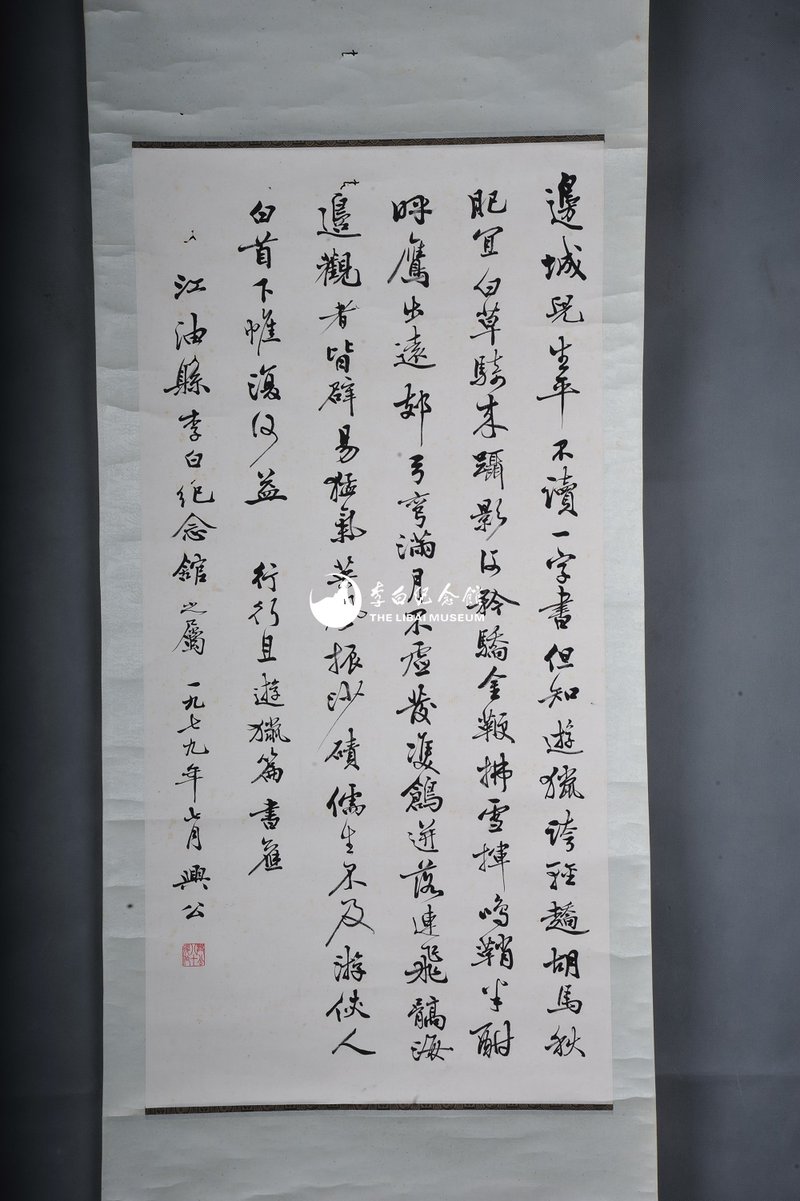 邊城兒生平不讀一字書但知遊獵誇輕趫胡馬秋
肥宜白草騎來躡影何矜驕金鞭拂雪揮鳴鞘半酣
呼鷹出遠郊弓彎滿月不虛發雙鶬迸落連飛髇海
邊觀者皆辟易猛氣英風振沙磧儒生不及游俠人
白首下帷復何益 行行且遊獵篇書應
江油縣李白紀念館之屬 一九七九年七月 興公
李白纪念館
THE LIBAI MUSEUM